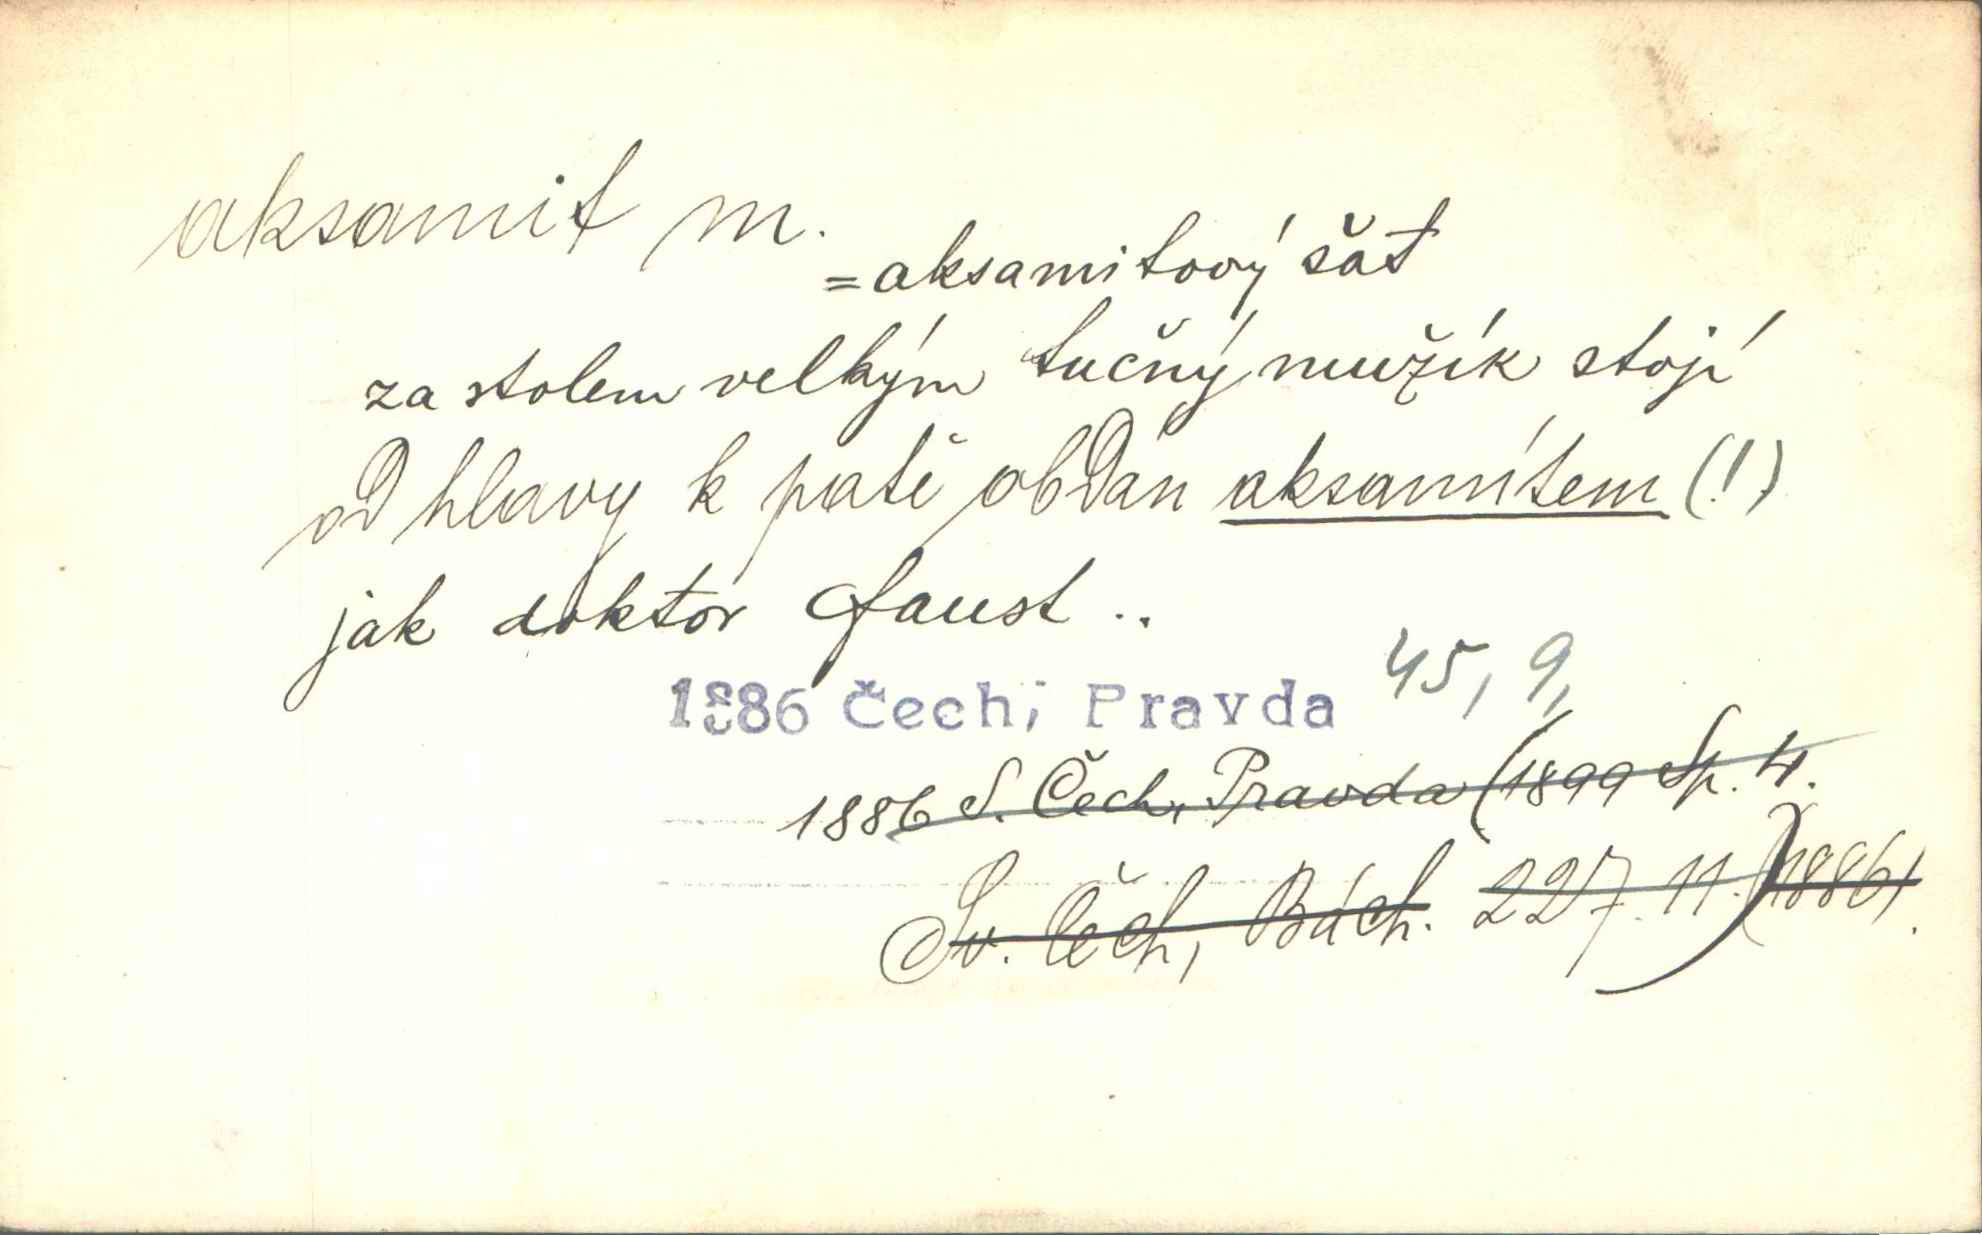 aksamit m.
= aksamitový šat
za stolem velkým tučný mužík stojí
od hlavy k patě obdán aksamítem (!)
jak doktor Faust ..
1886 Čech, Pravda 45, 9,
1886 S. Čech, Pravda (1899 Sp. 4.
Sv. Čech, Bách. 227. 11. (1886)